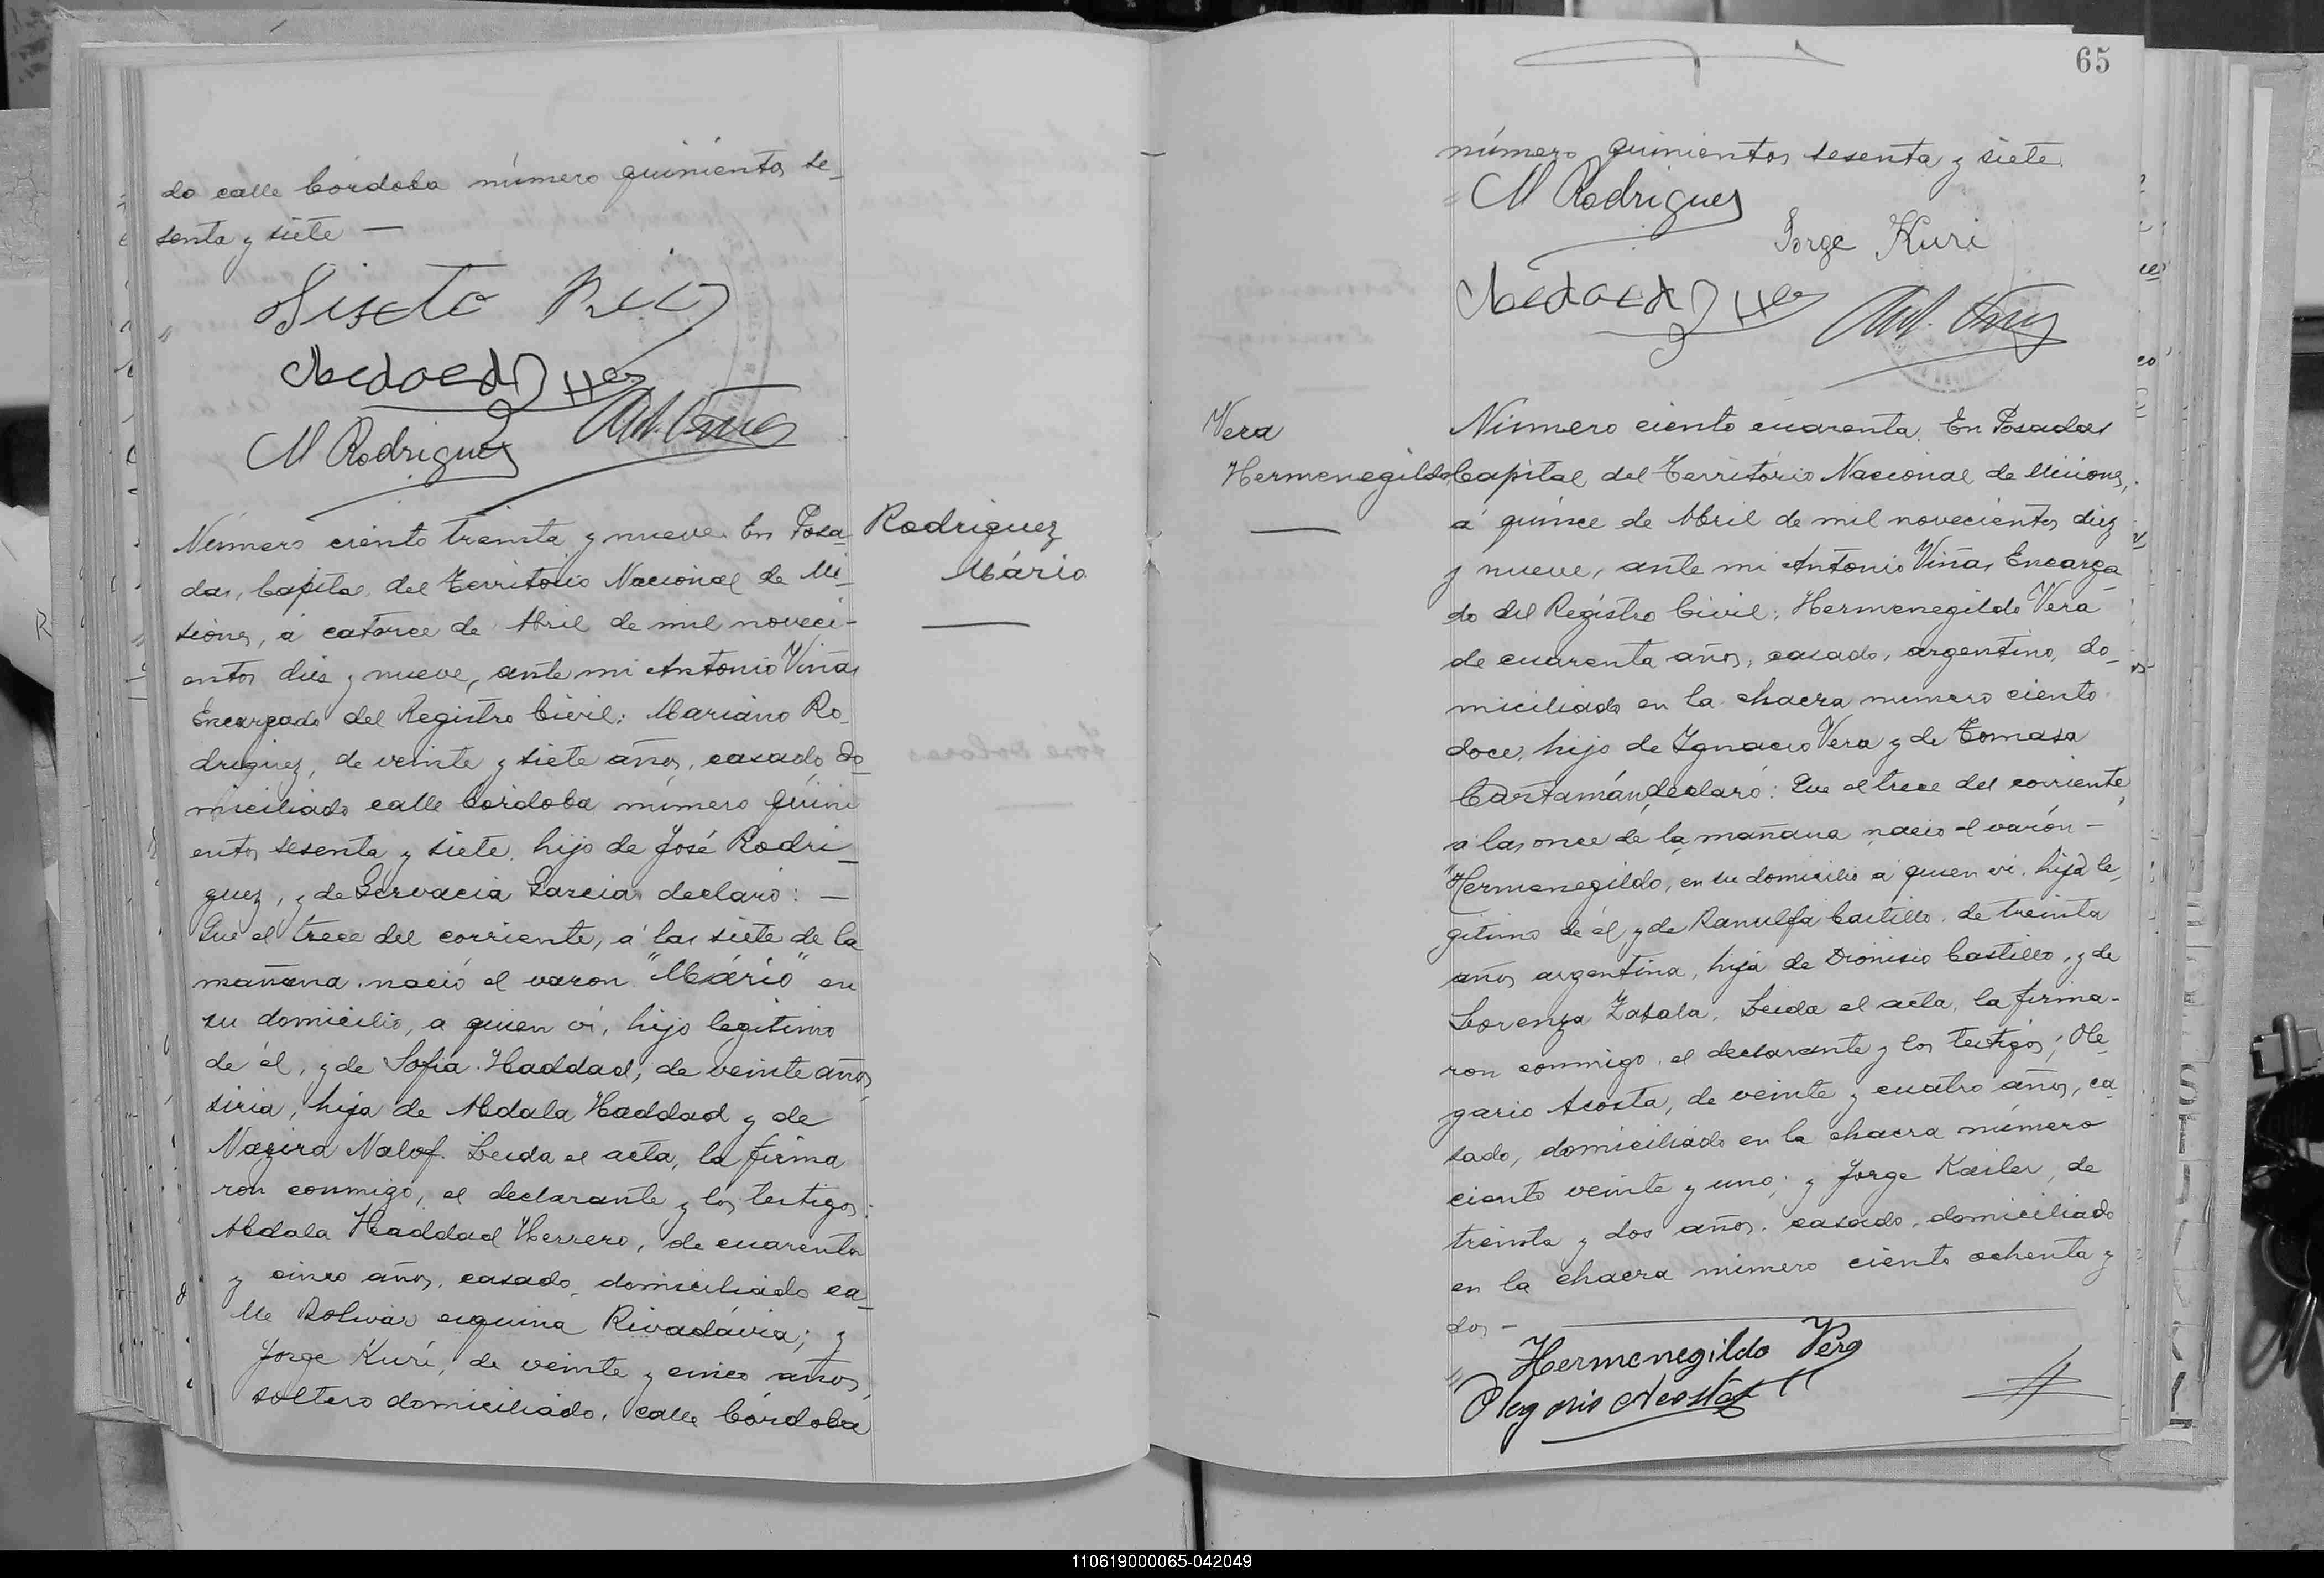 do calle Córdoba número quinientos se-
senta y siete —
Sixto
M Rodriguez
Número ciento treinta y nueve. En Posa-
das, Capital del Territorio Nacional de Mi-
siones, á catorce de Abril de mil noveci-
entos diez y nueve, ante mi Antonio Viñas
Encargado del Registro Civil: Mariano Ro-
driguez, de veinte y siete años, casado, do-
miciliado calle Cordoba número quini
entos sesenta y siete, hijo de José Rodri-
guez, y de Gervacia Garcia, declaró: —
Que el trece del corriente, á las siete de la
mañana nació el varon "Mário" en
su domicilio, a quien vi, hijo legitimo
de él, y de Sofia Haddad, de veinte años,
siria, hija de Abdala Haddad y de
Nazira Nalof. Leida el acta, la firma
ron conmigo, el declarante y los testigos:
Abdala Haddad Herrero, de cuarenta
y cinco años, casado, domiciliado ca-
lle Bolivar esquina Rivadávia; y
Jorge Kuri, de veinte y cinco años,
soltero domiciliado, calle Córdoba
Rodriguez
Mário
65
número quinientos sesenta y siete.
M Rodriguez
Jorge Kuri
Vera
Hermenegildo
Número ciento cuarenta. En Posadas
Capital del Territorio Nacional de Misiones,
á quince de Abril de mil novecientos diez
y nueve, ante mi Antonio Viñas Encarga
do del Registro Civil; Hermenegildo Vera
de cuarenta años, casado, argentino, do-
miciliado en la chacra numero ciento
doce, hijo de Ignacio Vera y de Tomasa
Cartamán, declaró: Que el trece del corriente,
a las once de la mañana nació el varón —
"Hermenegildo, en su domicilio á quien vi, hijo le-
gitimo de él y de Ranulfa Castillo, de treinta
años argentina, hija de Dionisio Castillo, y de
Lorenza Zabala. Leida el acta, la firma-
ron conmigo, el declarante y los testigos; Ole-
gario Acosta, de veinte y cuatro años, ca
sado, domiciliado en la chacra número
ciento veinte y uno; y Jorge Kailer, de
treinta y dos años, casado, domiciliado
en la chacra número ciento ochenta y
dos —
Hermenegildo Vera
Olegario Acosta
110619000065-042049